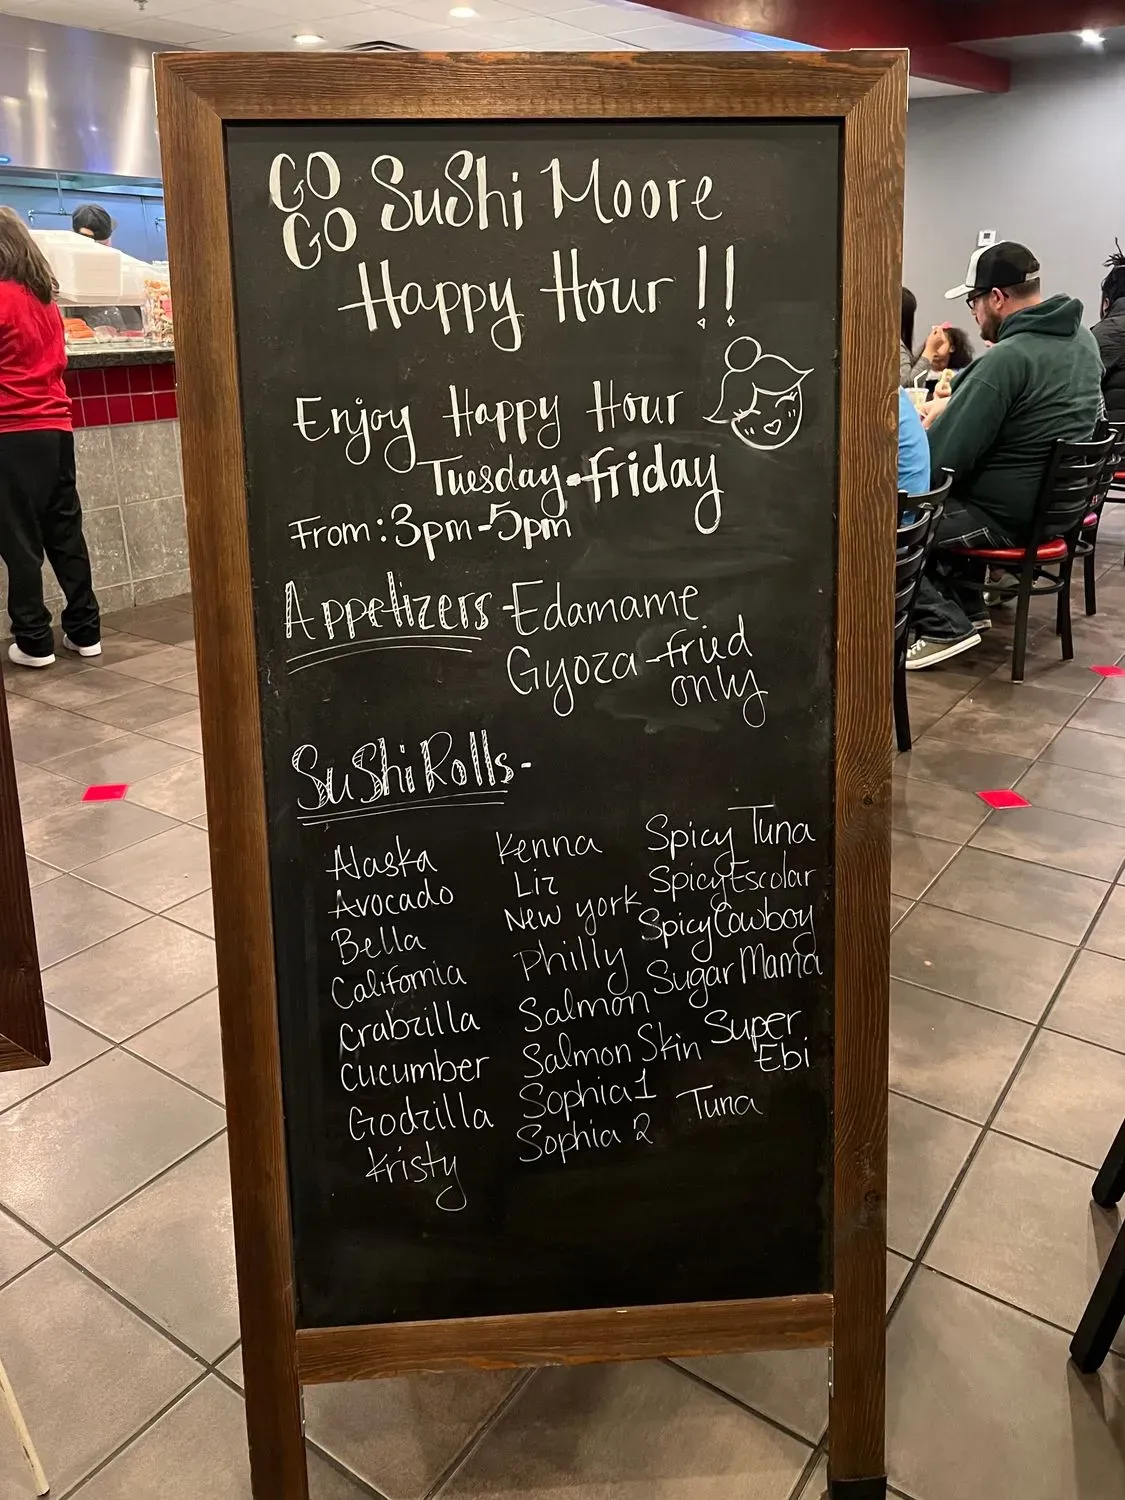 GO GO SuShi Moore
Happy Hour !!
Enjoy Happy Hour
Tuesday-friday
From: 3pm-5pm
Appetizers - Edamame
Gyoza - fried
only
SuShi Rolls -
Alaska
Avocado
Bella
California
Crabzilla
Cucumber
Godzilla
Kristy
Kenna
Liz
New york
Philly
Salmon
Salmon Skin
Sophia 1
Sophia 2
Spicy Tuna
Spicy Escolar
Spicy Cowboy
Sugar Mama
Super
Ebi
Tuna